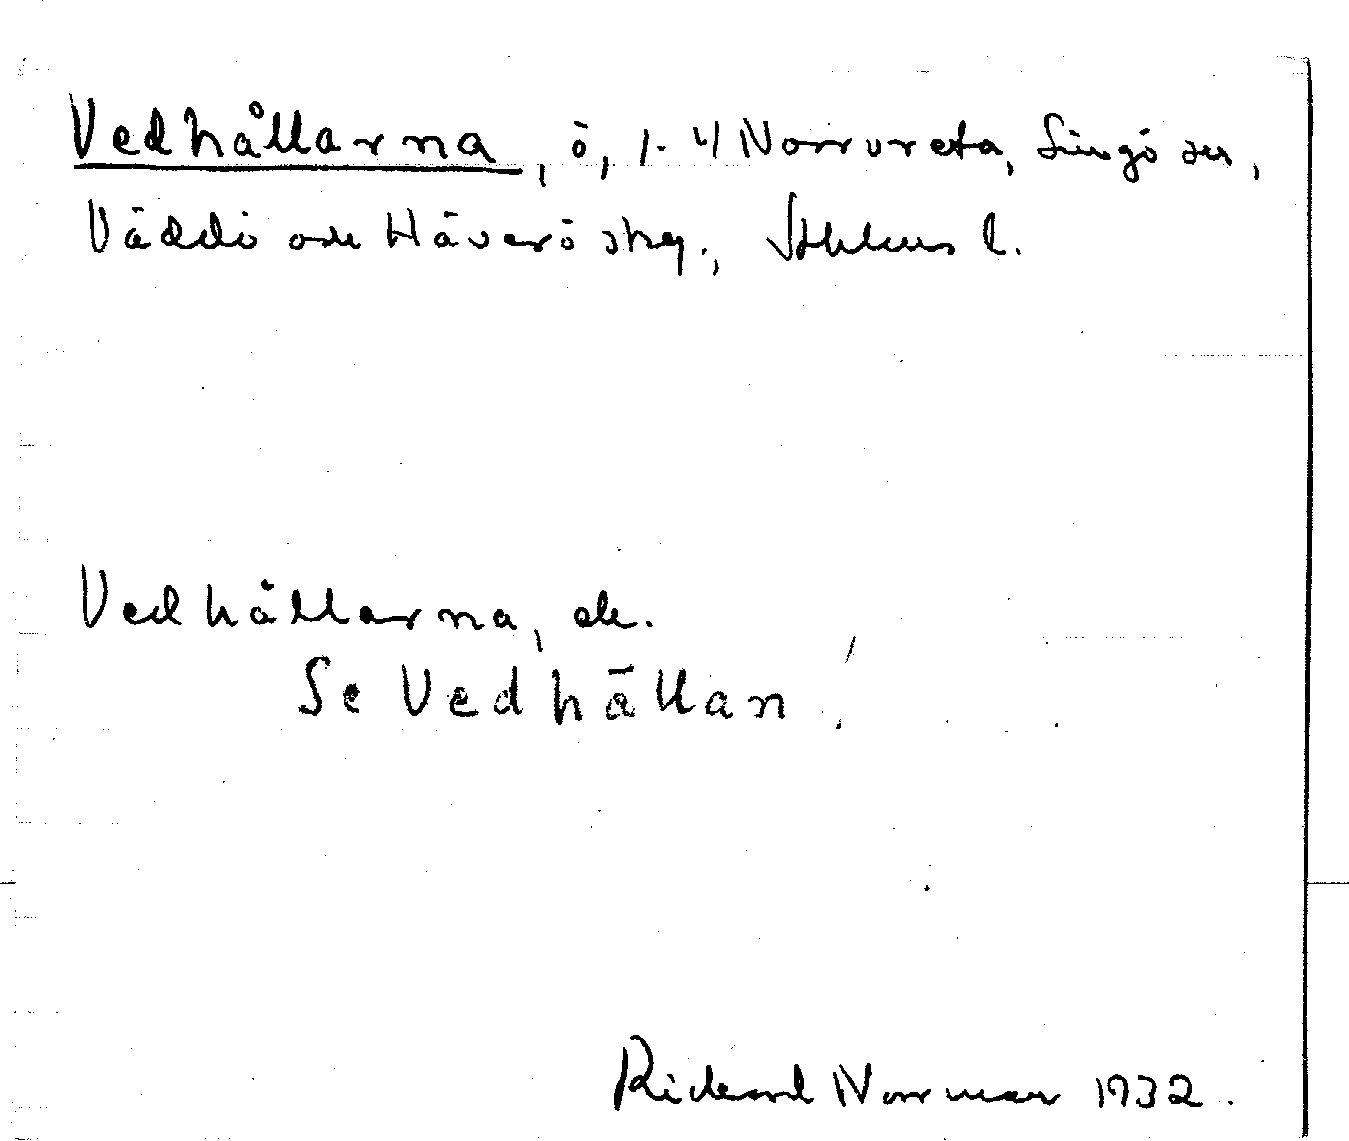 Vedhållarna, ö, 1-4 Norrvreta, Singö sn,
Väddö och Häverö skg., Sthlms l.
Vedhållarna, de.
Se Vedhällan.
Rickard Norrman 1932.